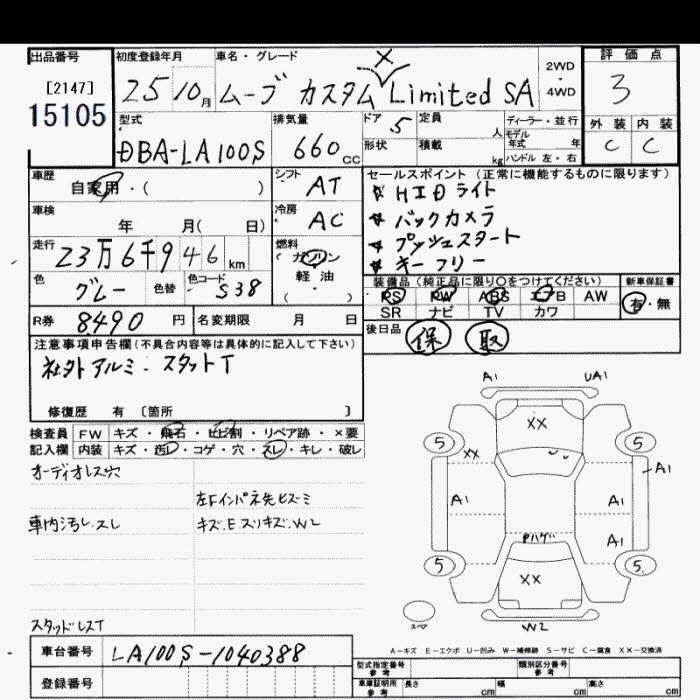 出品番号
[2147]
15105
初度登録年月
25 10月
車名・グレード
ムーブ カスタム Limited SA
2WD
・
4WD
評価点
3
外装 内装
C C
型式
DBA-LA100S
排気量
660cc
ドア 5
定員 人
形状
積載 kg
ディーラー・並行
モデル年式 年
ハンドル 左・右
車歴
自家用・( )
シフト
AT
車検
年 月( 日)
冷房
AC
走行
23万6千946km
燃料
ガソリン
軽油
( )
色
グレー
色替
色コード
S38
R券 8490円
名変期限 月 日
セールスポイント (正常に機能するものに限ります)
☆ HIDライト
☆ バックカメラ
☆ プッシュスタート
☆ キーフリー
装備品(純正品に限り〇をつけてください)
PS PW ABS エアB AW
SR ナビ TV カワ
新車保証書
有・無
後日品 保 取
注意事項申告欄(不具合内容等は具体的に記入して下さい)
社外アルミ. スタットT
修復歴 有 〔箇所 〕
検査員 FW キズ・飛石・ヒビ割・リペア跡・×要
記入欄 内装 キズ・汚レ・コゲ・穴・スレ・キレ・破レ
オーディオレス穴
左Fインパネ先ヒズミ
車内汚レ.スレ
キズ.E.スリキズ.W2
スタッドレスT
A1 UA1
XX
5 5
XX
A1
A1 A1
A1
Pハゲ
5 5
XX
スペア
W2
A-キズ E-エクボ U-凹み W-補修跡 S-サビ C-腐食 XX-交換済
車台番号 LA100S-1040388
登録番号
型式指定番号 参考
類別区分番号 参考
車庫証明用 参考 長さ cm 幅 cm 高さ cm